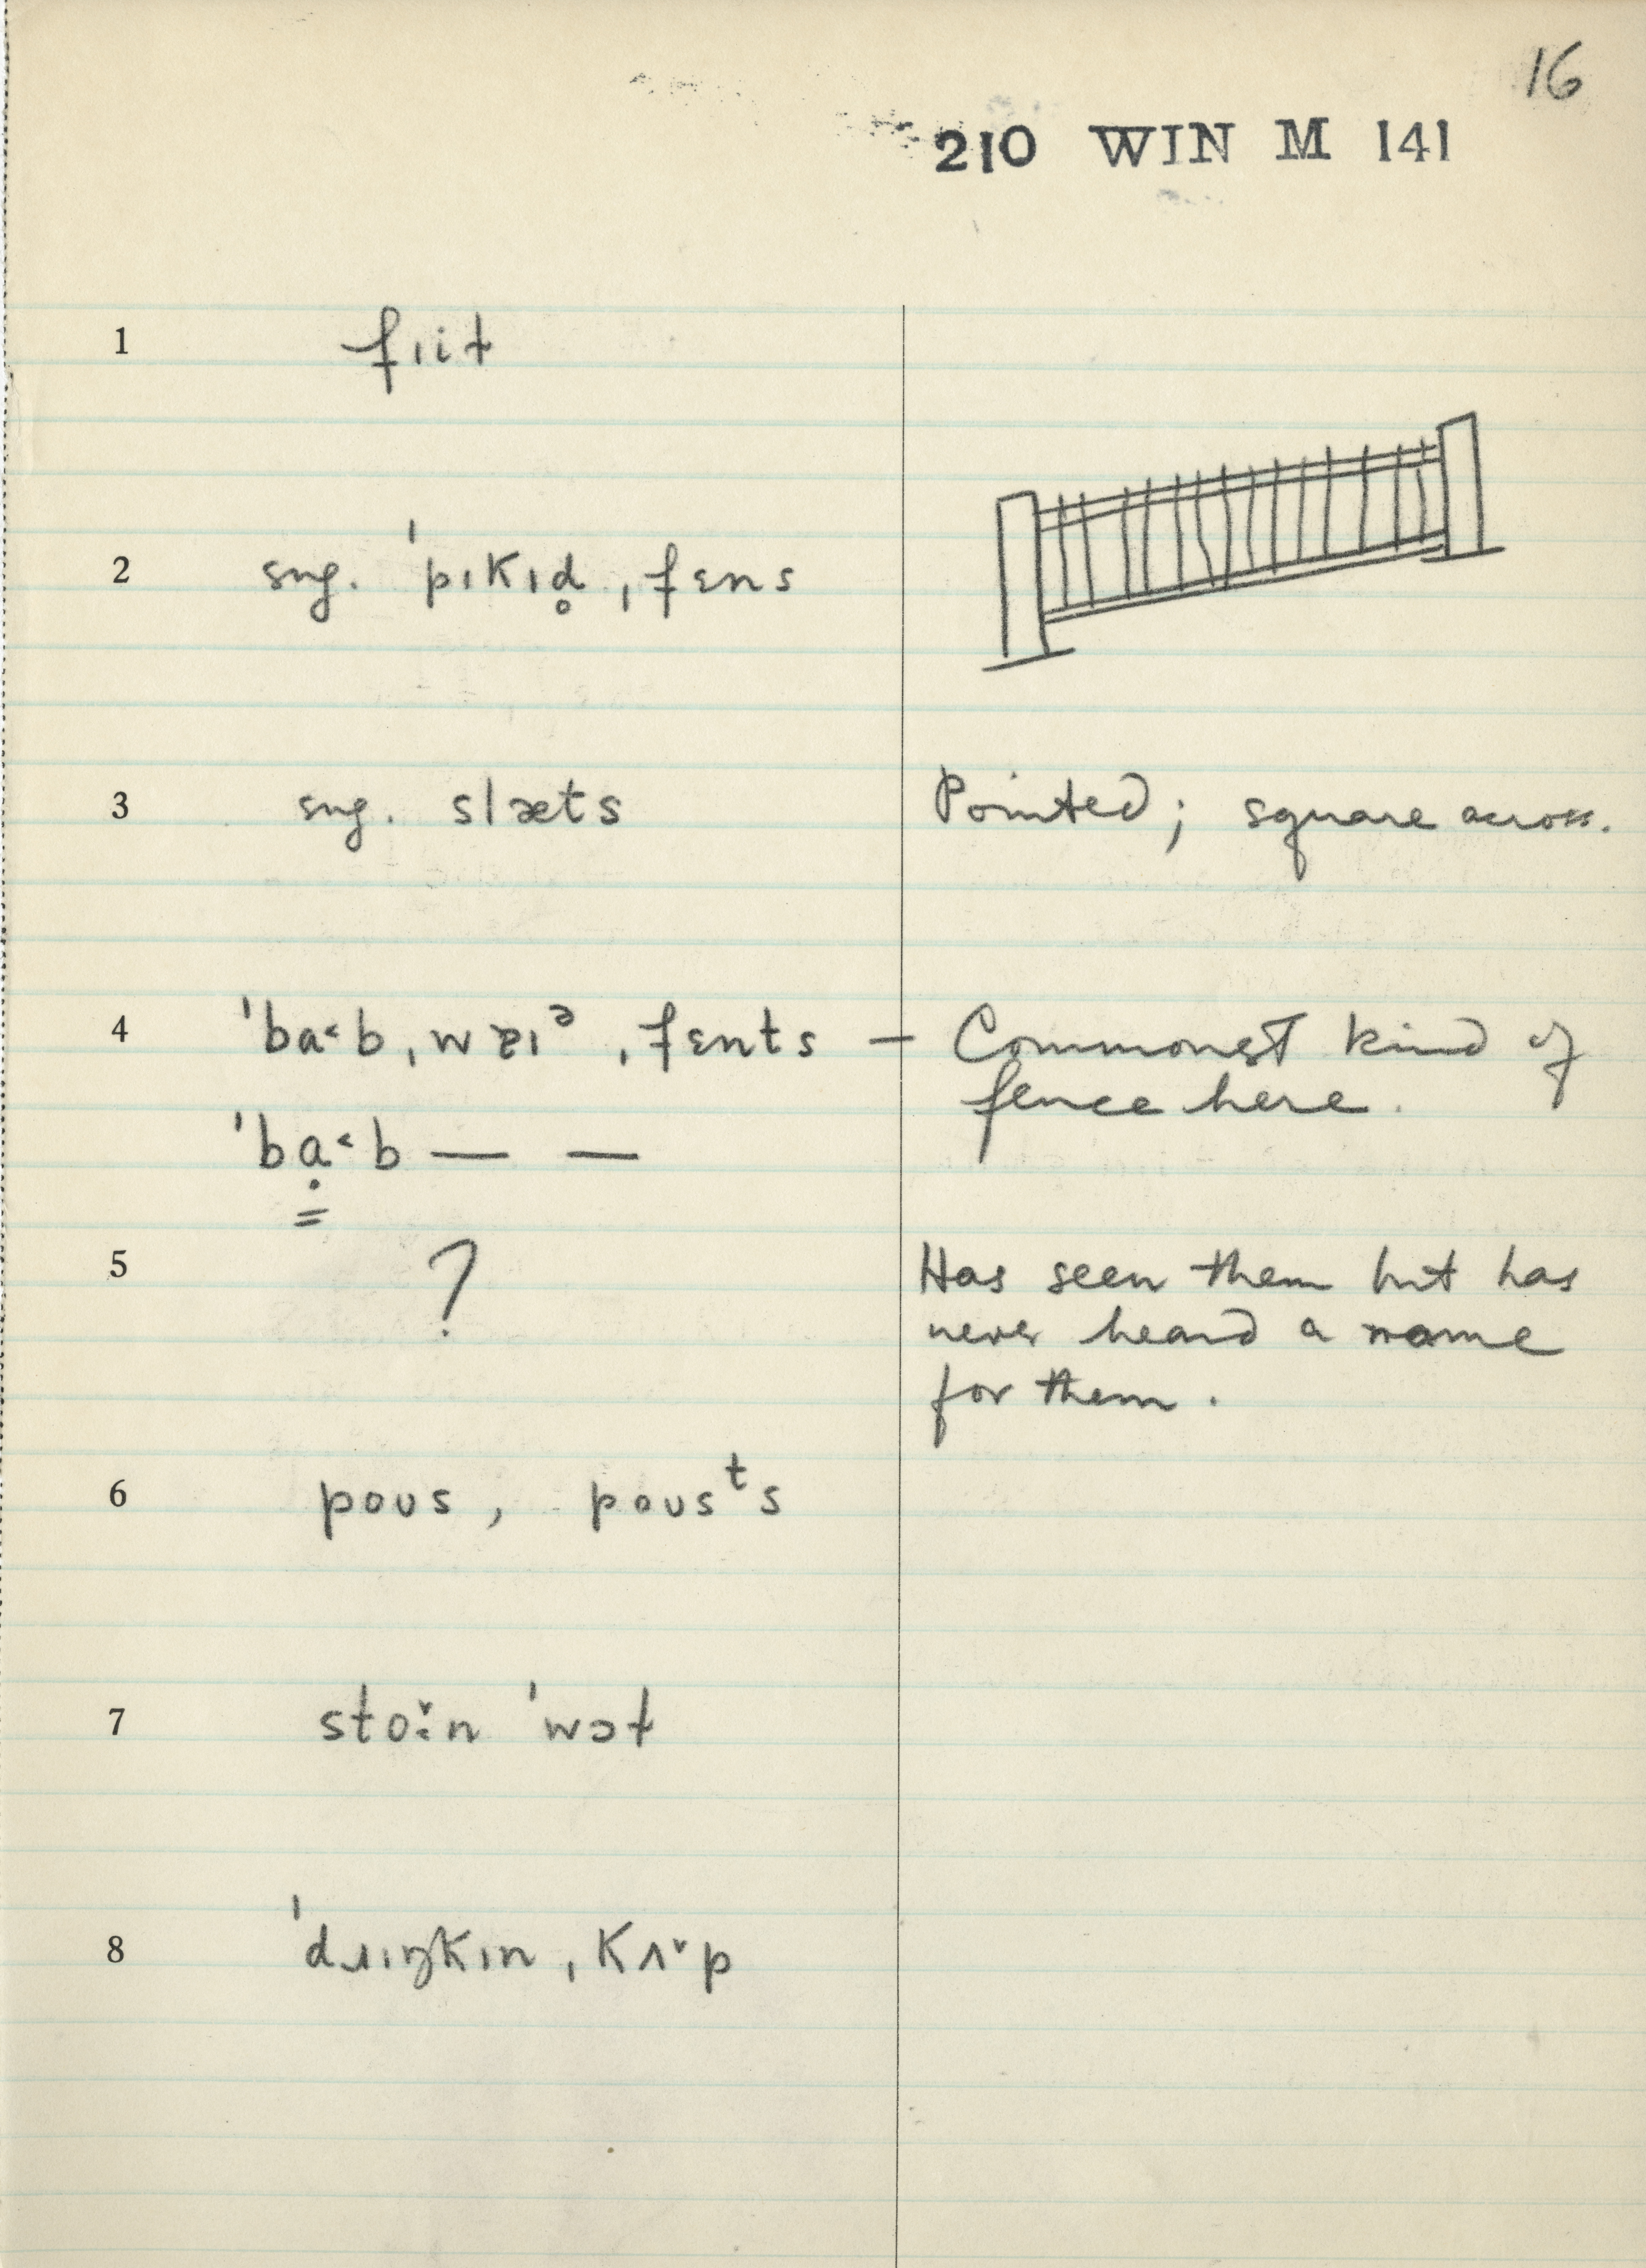 16
210 WIN M 141
1 fɪit
2 sug. ˈpɪkɪd̥ ˌfɛns
3 sug. slæts Pointed; square across.
4 ˈba˂b ˌwɐɪᵊ ˌfɛnts — Commonest kind of
fence here.
ˈbạ˂b — —
5 ? Has seen them but has
never heard a name
for them.
6 poʊs, poʊsᵗs
7 sto˞̌n ˈwɔɫ
8 ˈdɹɪŋkɪn ˌkʌ˅p